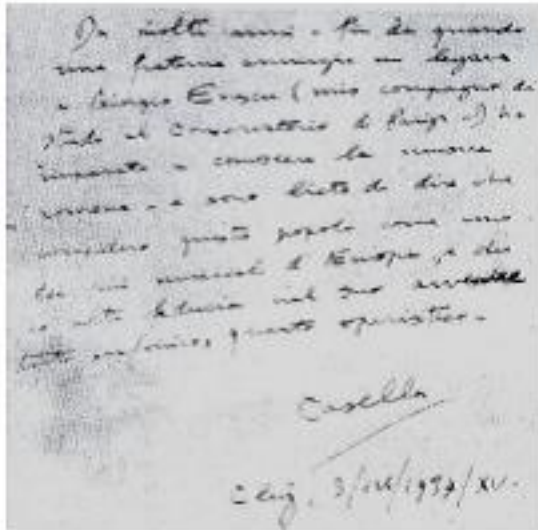 Da molti anni - fin da quando
una fraterna amicizia mi legava
a Giorgio Enescu (mio compagno di
studio al Conservatorio di Parigi -) ho
imparato a conoscere la musica
romena - e sono lieto di dire che
considero questo popolo come uno
dei più musicali d'Europa, e che
ho molta fiducia nel suo avvenire
tanto sinfonico, quanto operistico -
Casella
Cluj, 3/ /1937/XV.